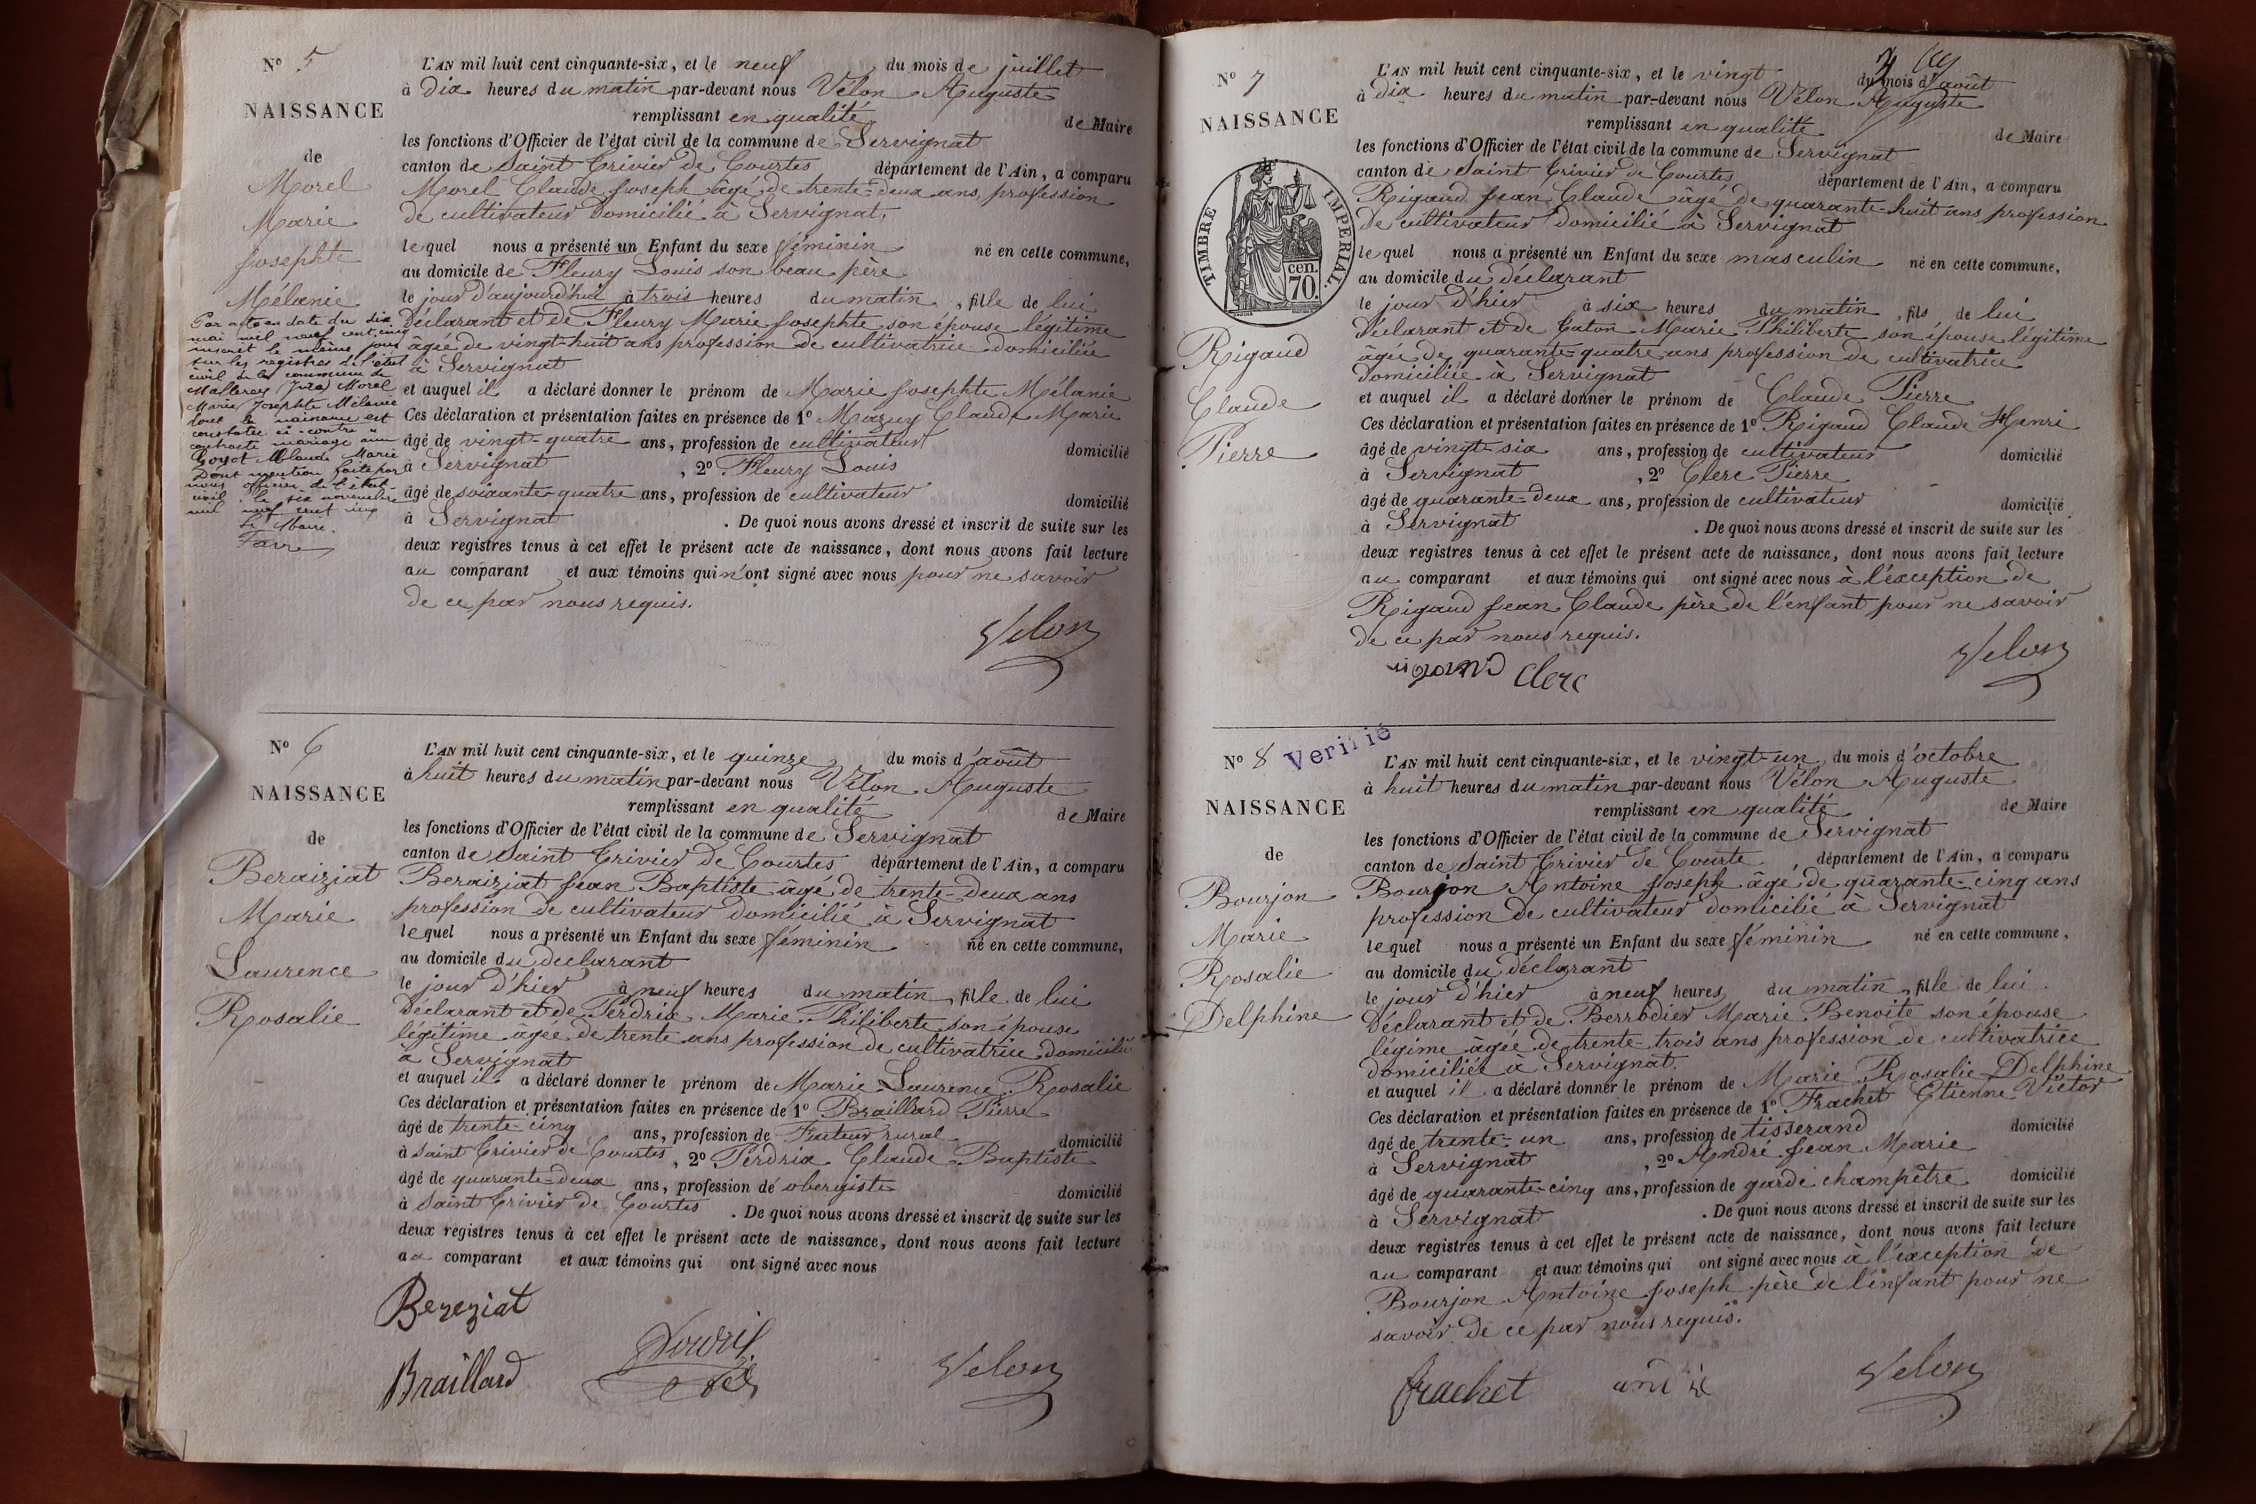 N° 5
NAISSANCE
de
Morel
Marie
Josephte
Mélanie
Par acte en date du six
mai mil neuf cent cinq
inscrit le même jour
sur les registres de l'état
civil de la commune de
Mallerey (Jura) Morel
Marie Josephte Mélanie
dont la naissance est
constatée ci-contre a
contracté mariage avec
Goyot Claude Marie
Dont mention faite par
nous officier de l'état-
civil le six novembre
mil neuf cent
Le Maire.
Favre
L'AN mil huit cent cinquante-six, et le neuf du mois de juillet
à dix heures du matin par-devant nous Velon Auguste
remplissant en qualité de Maire
les fonctions d'Officier de l'état civil de la commune de Servignat
canton de Saint Trivier de Courtes département de l'Ain, a comparu
Morel Claude Joseph âgé de trente-deux ans, profession
de cultivateur domicilié à Servignat,
lequel nous a présenté un Enfant du sexe féminin né en cette commune,
au domicile de Fleury Louis son beau père
le jour d'aujourd'hui à trois heures du matin, fille de lui
déclarant et de Fleury Marie Josephte son épouse légitime
âgée de vingt-huit ans profession de cultivatrice domiciliée
à Servignat
et auquel il a déclaré donner le prénom de Marie Josephte Mélanie
Ces déclaration et présentation faites en présence de 1° Mazuy Claude Marie
âgé de vingt-quatre ans, profession de cultivateur domicilié
à Servignat, 2° Fleury Louis
âgé de soixante-quatre ans, profession de cultivateur domicilié
à Servignat. De quoi nous avons dressé et inscrit de suite sur les
deux registres tenus à cet effet le présent acte de naissance, dont nous avons fait lecture
au comparant et aux témoins qui n'ont signé avec nous pour ne savoir
de ce par nous requis.
Velon
N° 6
NAISSANCE
de
Beraiziat
Marie
Laurence
Rosalie
L'AN mil huit cent cinquante-six, et le quinze du mois d'août
à huit heures du matin par-devant nous Vélon Auguste
remplissant en qualité de Maire
les fonctions d'Officier de l'état civil de la commune de Servignat
canton de Saint Trivier de Courtes département de l'Ain, a comparu
Beraiziat Jean Baptiste âgé de trente-deux ans
profession de cultivateur domicilié à Servignat
lequel nous a présenté un Enfant du sexe féminin né en cette commune,
au domicile du déclarant
le jour d'hier à neuf heures du matin, fille de lui
déclarant et de Perdrix Marie Philiberte son épouse
légitime âgée de trente ans profession de cultivatrice domicilié
à Servignat
et auquel il a déclaré donner le prénom de Marie Laurence Rosalie
Ces déclaration et présentation faites en présence de 1° Braillard Pierre
âgé de trente-cinq ans, profession de Facteur rural domicilié
à Saint Trivier de Courtes, 2° Perdrix Claude Baptiste
âgé de quarante-deux ans, profession de obergiste domicilié
à Saint Trivier de Courtes. De quoi nous avons dressé et inscrit de suite sur les
deux registres tenus à cet effet le présent acte de naissance, dont nous avons fait lecture
au comparant et aux témoins qui ont signé avec nous
Bereziat
Braillard
Velon
N° 7
NAISSANCE
TIMBRE IMPERIAL.
70 cen.
Rigaud
Claude
Pierre
L'AN mil huit cent cinquante-six, et le vingt du mois d'août
à dix heures du matin par-devant nous Vélon Auguste
remplissant en qualité de Maire
les fonctions d'Officier de l'état civil de la commune de Servignat
canton de Saint Trivier de Courtes département de l'Ain, a comparu
Rigaud Jean Claude âgé de quarante-huit ans profession
de cultivateur domicilié à Servignat
lequel nous a présenté un Enfant du sexe masculin né en cette commune,
au domicile du déclarant
le jour d'hier à six heures du matin, fils de lui
déclarant et de Caton Marie Philiberte son épouse légitime
âgée de quarante-quatre ans profession de cultivatrice
domiciliée à Servignat
et auquel il a déclaré donner le prénom de Claude Pierre
Ces déclaration et présentation faites en présence de 1° Rigaud Claude Henri
âgé de vingt-six ans, profession de cultivateur domicilié
à Servignat, 2° Clerc Pierre
âgé de quarante-deux ans, profession de cultivateur domicilié
à Servignat. De quoi nous avons dressé et inscrit de suite sur les
deux registres tenus à cet effet le présent acte de naissance, dont nous avons fait lecture
au comparant et aux témoins qui ont signé avec nous à l'exception de
Rigaud Jean Claude père de l'enfant pour ne savoir
de ce par nous requis.
Clerc
Velon
N° 8
Verifié
NAISSANCE
de
Bourjon
Marie
Rosalie
Delphine
L'AN mil huit cent cinquante-six, et le vingt-un du mois d'octobre
à huit heures du matin par-devant nous Vélon Auguste
remplissant en qualité de Maire
les fonctions d'Officier de l'état civil de la commune de Servignat
canton de Saint Trivier de Courte, département de l'Ain, a comparu
Bourjon Antoine Joseph âgé de quarante-cinq ans
profession de cultivateur domicilié à Servignat
lequel nous a présenté un Enfant du sexe féminin né en cette commune,
au domicile du déclarant
le jour d'hier à neuf heures du matin, fille de lui
déclarant et de Berrodier Marie Benoite son épouse
légime âgée de trente-trois ans profession de cultivatrice
domiciliée à Servignat.
et auquel il a déclaré donner le prénom de Marie Rosalie Delphine
Ces déclaration et présentation faites en présence de 1° Frachet Etienne Victor
âgé de trente-un ans, profession de tisserand domicilié
à Servignat, 2° André Jean Marie
âgé de quarante-cinq ans, profession de garde champêtre domicilié
à Servignat. De quoi nous avons dressé et inscrit de suite sur les
deux registres tenus à cet effet le présent acte de naissance, dont nous avons fait lecture
au comparant et aux témoins qui ont signé avec nous à l'exception de
Bourjon Antoine Joseph père de l'enfant pour ne
savoir de ce par nous requis.
frachet andré Velon